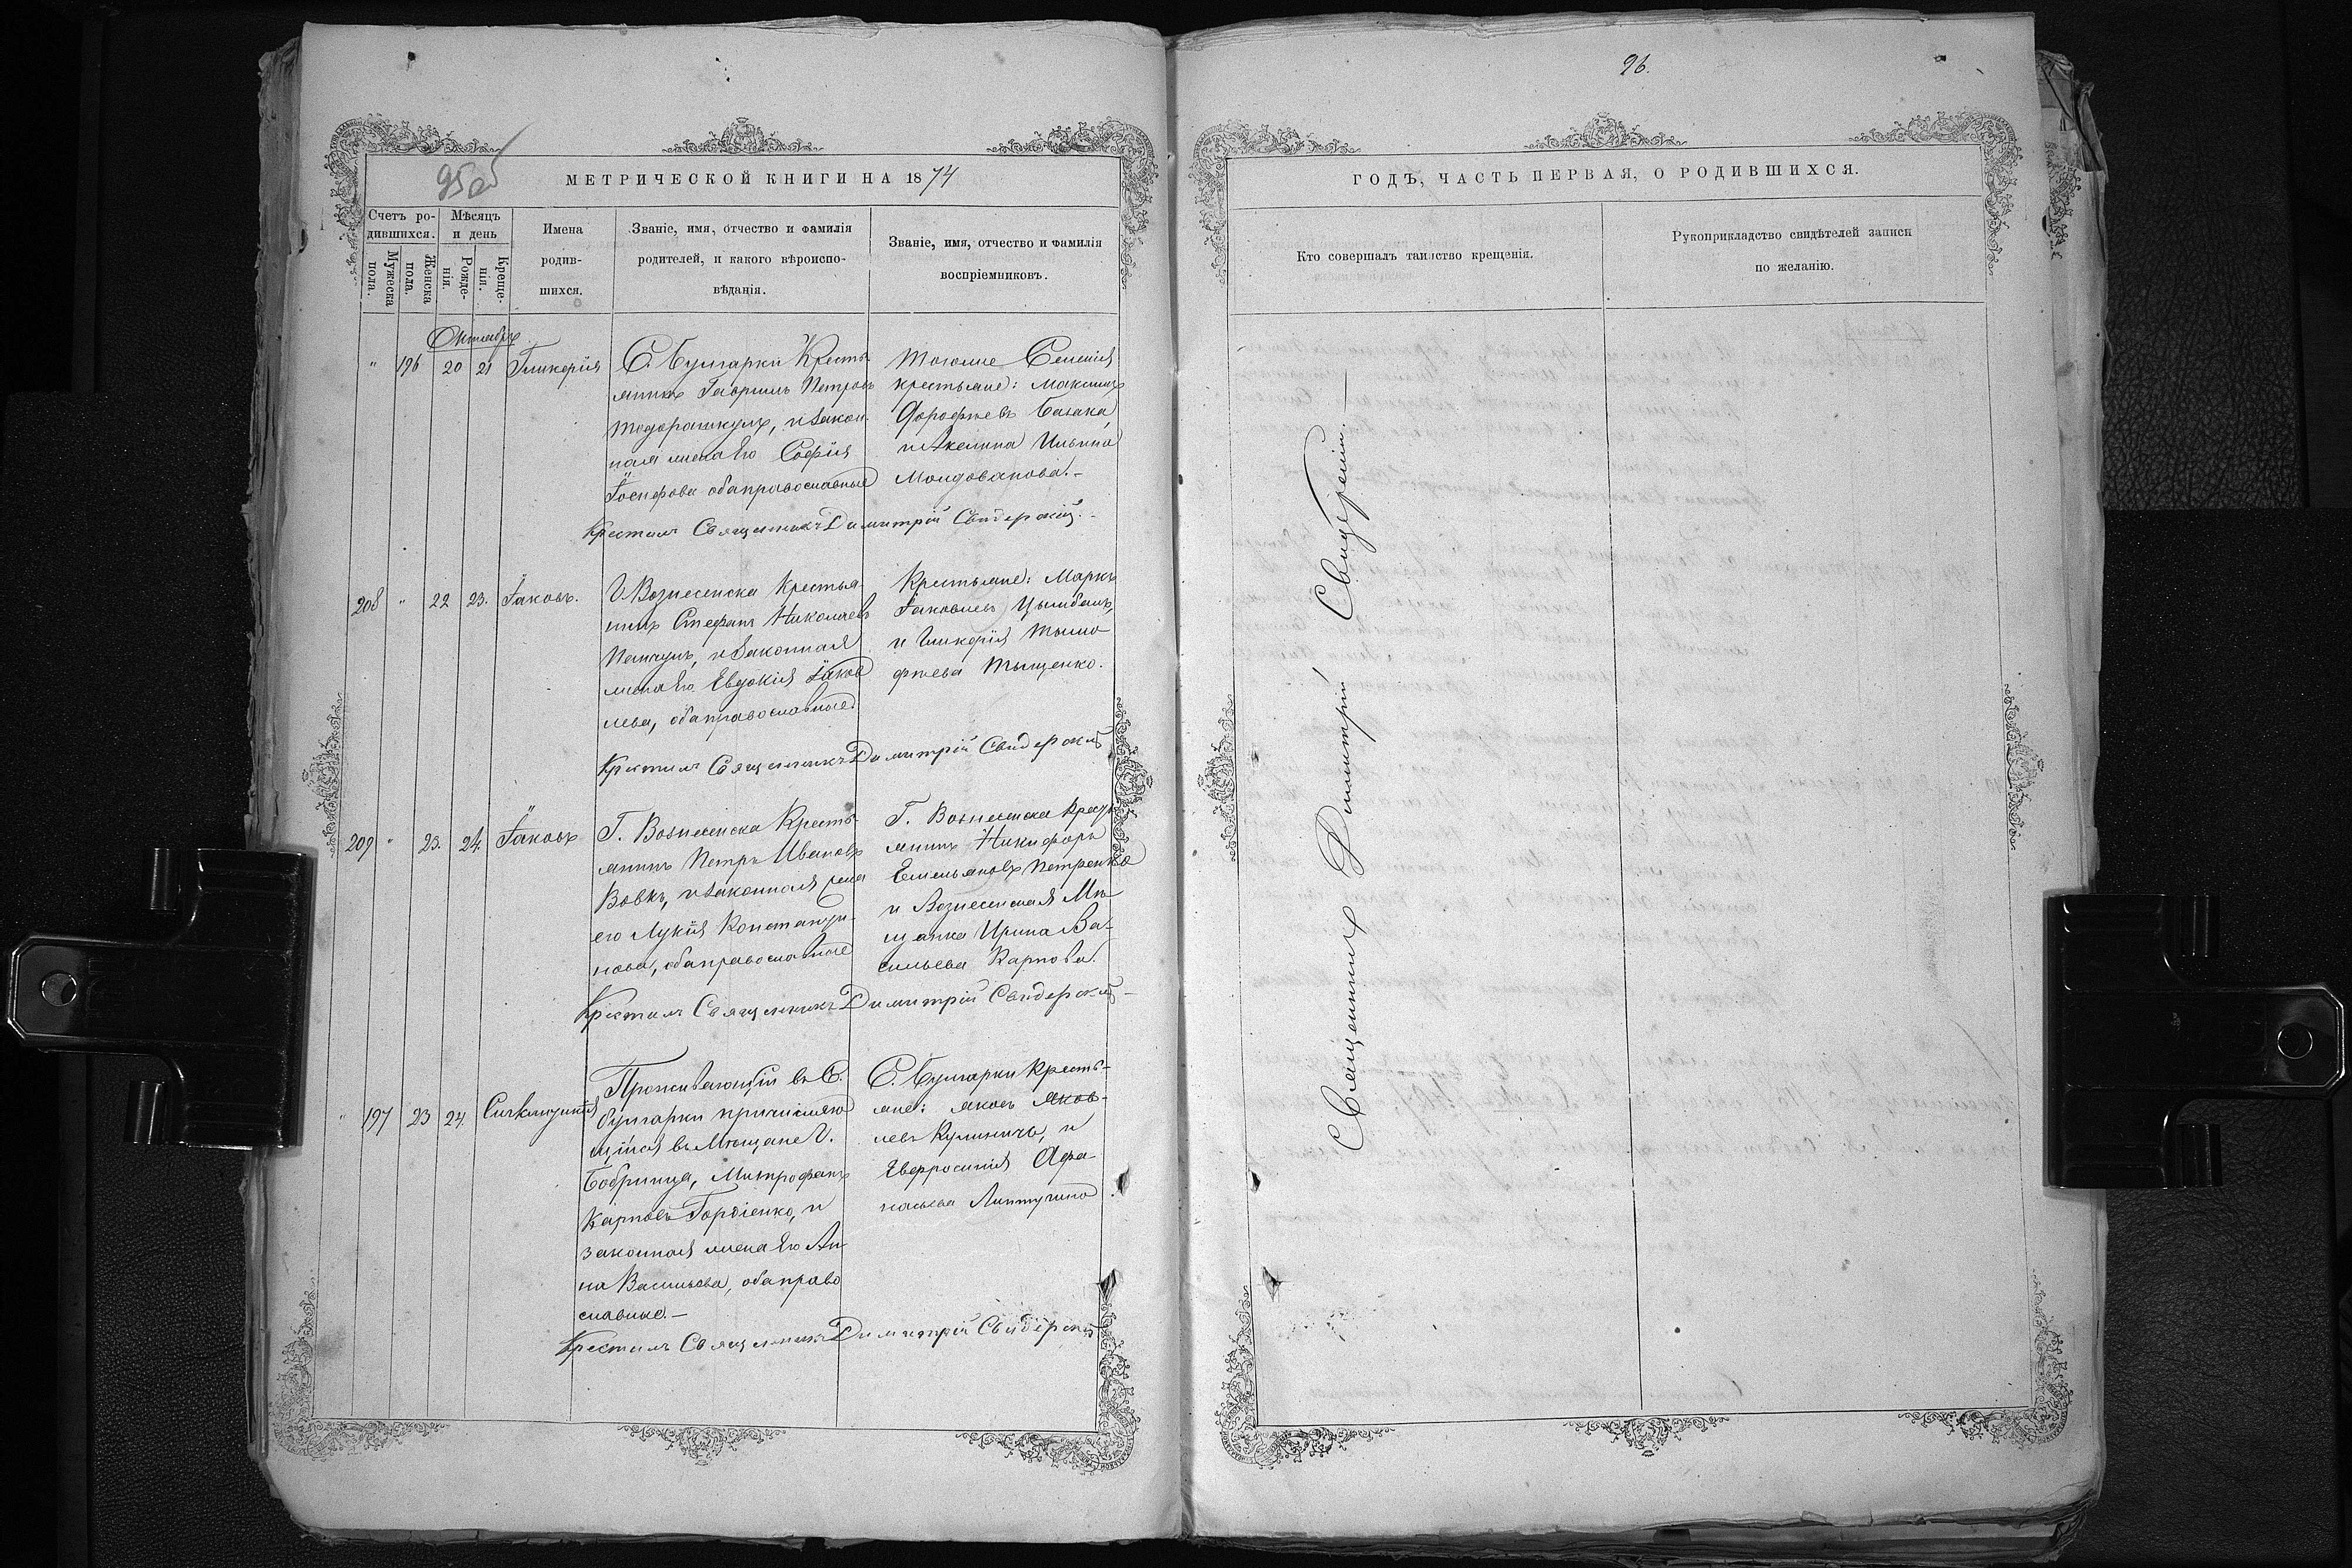 95об
МЕТРИЧЕСКОЙ КНИГИ НА 1874
Счетъ ро-
дившихся.
Мужеска
пола.
Женска
пола.
Мѣсяцъ
и день
Рожде-
нія.
Креще-
нія.
Имена
родив-
шихся.
Званіе, имя, отчество и фамилія
родителей, и какого вѣроиспо-
вѣданія.
Званіе, имя, отчество и фамилія
воспріемниковъ.
Октябрь
" 196 20 21 Гликерія
С. Булгарки Кресть-
янинъ Гавріилъ Петровъ
Тодорашкулъ, и закон-
ная жена его Софія
Іосифова оба православные
Тогоже Селенія
крестьяне: Максимъ
Дорофеевъ Базака
и Акелина Ильина
Молдованова.-
Крестилъ Священникъ Димитрій Свидерскій.-
208 " 22 23. Іаковъ.
Г. Вознесенска Крестья-
нинъ Стефанъ Николаевъ
и законная
жена его Евдокія Іаков
лева, оба православные
Крестьяне: Маркъ
Іаковлевъ Цымбалъ,
и Гликерія Тимо
феева Тыщенко.
Крестилъ Священникъ Димитрій Свидерскій
209 " 23. 24. Іаковъ
Г. Вознесенска Кресть
янинъ Петръ Ивановъ
Вовкъ, и законная жена
его Лукія Константи-
нова, оба православные
Г. Вознесенска Кресть
янинъ Никифоръ
Емельяновъ Петренко
и Вознесенская Мѣ-
щанка Ирина Ва-
сильева Карпова.
Крестилъ Священникъ Димитрій Свидерскій-
" 197 23 24. Синклитикія
Проживающій въ С.
Булгарки причисляю
щійся въ Мѣщане Г.
Бобринца, Митрофанъ
Карповъ Гордіенко, и
законная жена его Ан-
на Васильева, оба право
славные.-
С. Булгарки Кресть-
яне: Яковъ Яков-
левъ Кулиничъ, и
Евфросинія Афа-
насьева
Крестилъ Священникъ Димитрій Свидерскій
96.
ГОДЪ, ЧАСТЬ ПЕРВАЯ, О РОДИВШИХСЯ.
Кто совершалъ таинство крещенія.
Рукоприкладство свидѣтелей записи
по желанію.
Священникъ Димитрій Свидерскій.